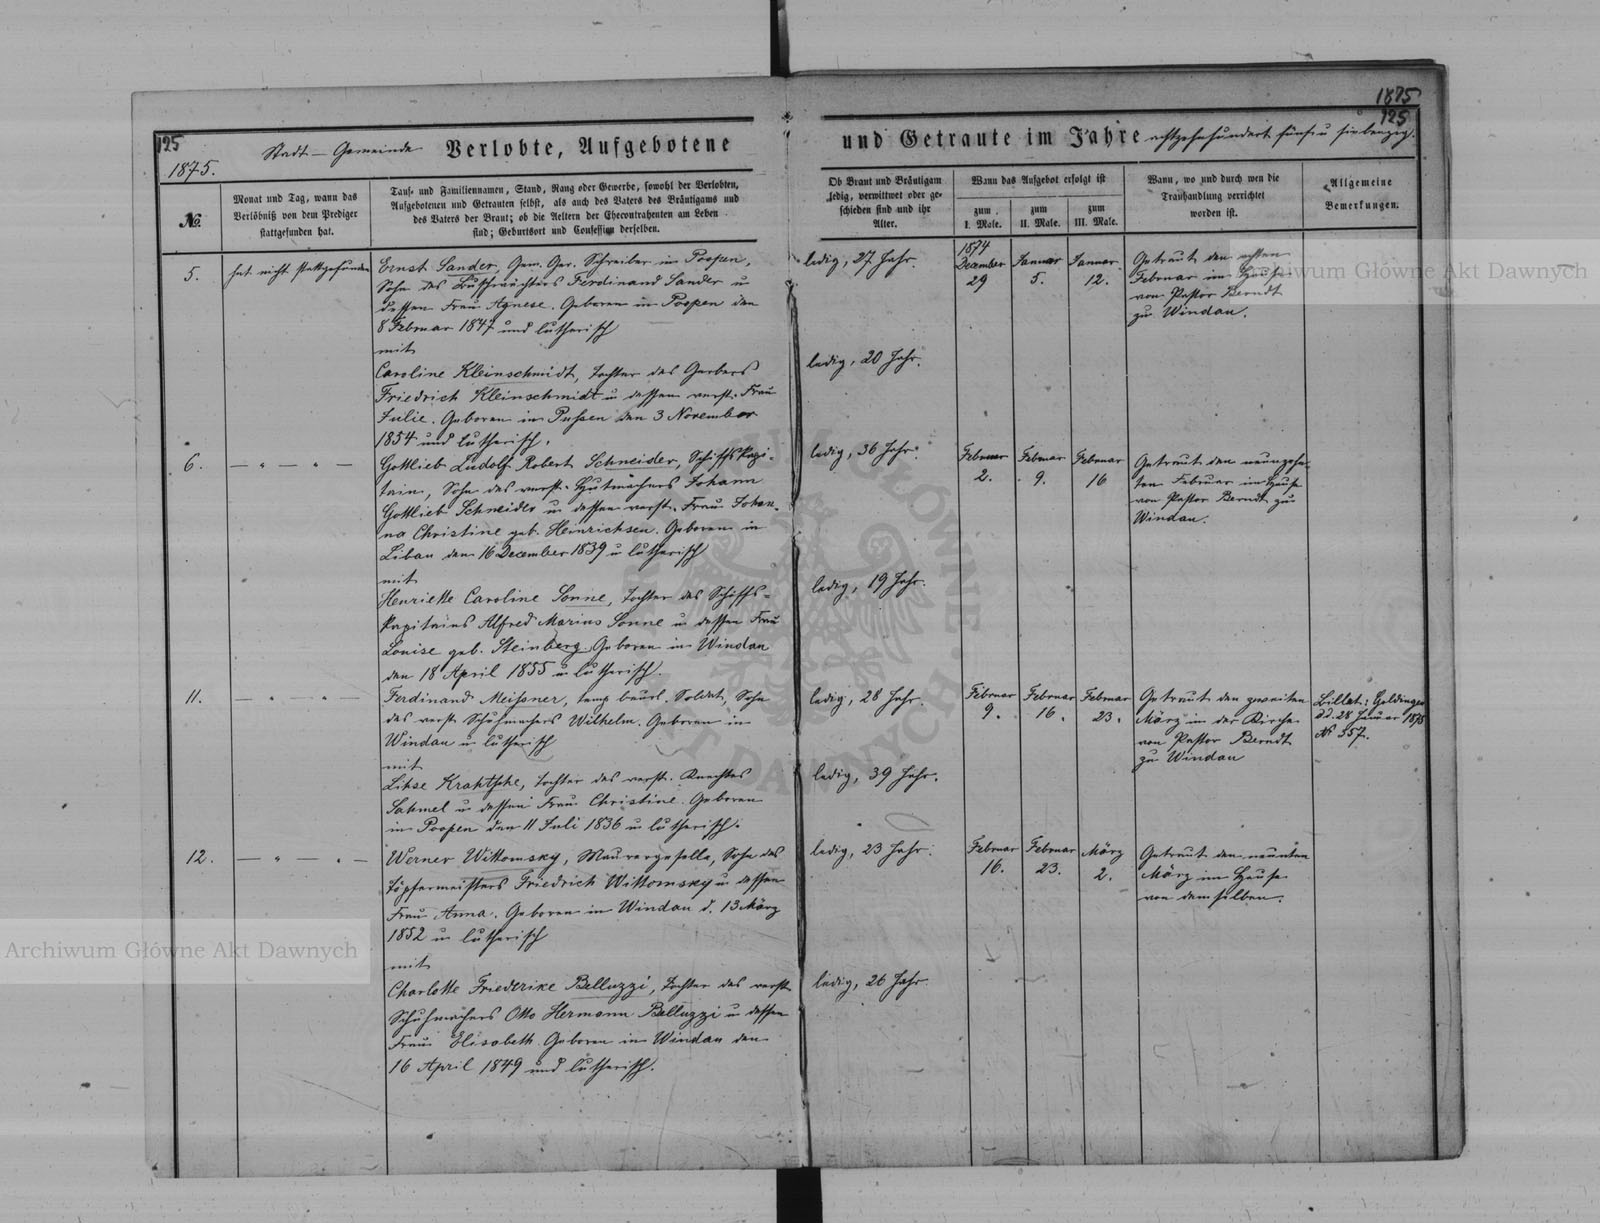 1875
125
125
1875.
Stadt-Gemeinde Verlobte, Aufgebotene
und Getraute im Jahre achtzehnhundert fünf u siebenzig.
№
Monat und Tag, wann das
Verlöbniß von dem Prediger
stattgefunden hat.
Tauf- und Familiennamen, Stand, Rang oder Gewerbe, sowohl der Verlobten,
Aufgebotenen und Getrauten selbst, als auch des Vaters des Bräutigams und
des Vaters der Braut; ob die Aeltern der Ehecontrahenten am Leben
sind; Geburtsort und Confession derselben.
Ob Braut und Bräutigam
ledig, verwittwet oder ge-
schieden sind und ihr
Alter.
Wann das Aufgebot erfolgt ist
zum I. Male.
zum II. Male.
zum III. Male.
Wann, wo und durch wen die
Trauhandlung verrichtet
worden ist.
Allgemeine
Bemerkungen.
5.
hat nicht stattgefunden
Ernst Sander, Gem. Ger. Schreiber in Poopen,
Sohn des Buschwächters Ferdinand Sander u
dessen Frau Agnese. Geboren in Poopen den
8 Februar 1847 und lutherisch
mit
Caroline Kleinschmidt, Tochter des Gerbers
Friedrich Kleinschmidt u dessen verst. Frau
Julie. Geboren in Pussen den 3 November
1854 und lutherisch.
ledig, 27 Jahr
ledig, 20 Jahr.
1874
December
29
Januar
5.
Januar
12.
Getraut den ersten
Februar im Hause
von Pastor Berndt
zu Windau.
6.
— " — " —
Gottlieb Ludolf Robert Schneider, Schiffskapi-
tain, Sohn des verst. Hutmachers Johann
Gottlieb Schneider u dessen verst. Frau Johan-
na Christine geb. Heinrichsen. Geboren in
Libau den 16 December 1839 u lutherisch
mit
Henriette Caroline Sonne, Tochter des Schiffs-
kapitains Alfred Marius Sonne u dessen Frau
Louise geb. Steinberg. Geboren in Windau
den 18 April 1855 u lutherisch.
ledig, 36 Jahr.
ledig, 19 Jahr.
Februar
2.
Februar
9.
Februar
16
Getraut den neunzehn-
ten Februar im Hause
von Pastor Berndt zu
Windau.
11.
— " — " —
Ferdinand Meißner, temp beurl. Soldat, Sohn
des verst. Schuhmachers Wilhelm. Geboren in
Windau u lutherisch
mit
Lihse Krahtsche, Tochter des verst. Knechtes
Sahmel u dessen Frau Christine. Geboren
in Poopen den 11 Juli 1836 u lutherisch.
ledig, 28 Jahr.
ledig, 39 Jahr.
Februar
9.
Februar
16.
Februar
23.
Getraut den zweiten
März in der Kirche
von Pastor Berndt
zu Windau
Billet: Goldingen
d.d. 28 Januar 1875
№ 357.
12.
— " — " —
Werner Wittomsky, Maurergeselle, Sohn des
Töpfermeisters Friedrich Wittomsky u dessen
Frau Anna. Geboren in Windau d. 13 März
1852 u lutherisch
mit
Charlotte Friederike Belluzzi, Tochter des verst.
Schuhmachers Otto Hermann Belluzzi u dessen
Frau Elisabeth. Geboren in Windau den
16 April 1849 und lutherisch.
ledig, 23 Jahr.
ledig, 26 Jahr.
Februar
16.
Februar
23.
März
2.
Getraut den neunten
März im Hause
von demselben.
Archiwum Główne Akt Dawnych
Archiwum Główne Akt Dawnych